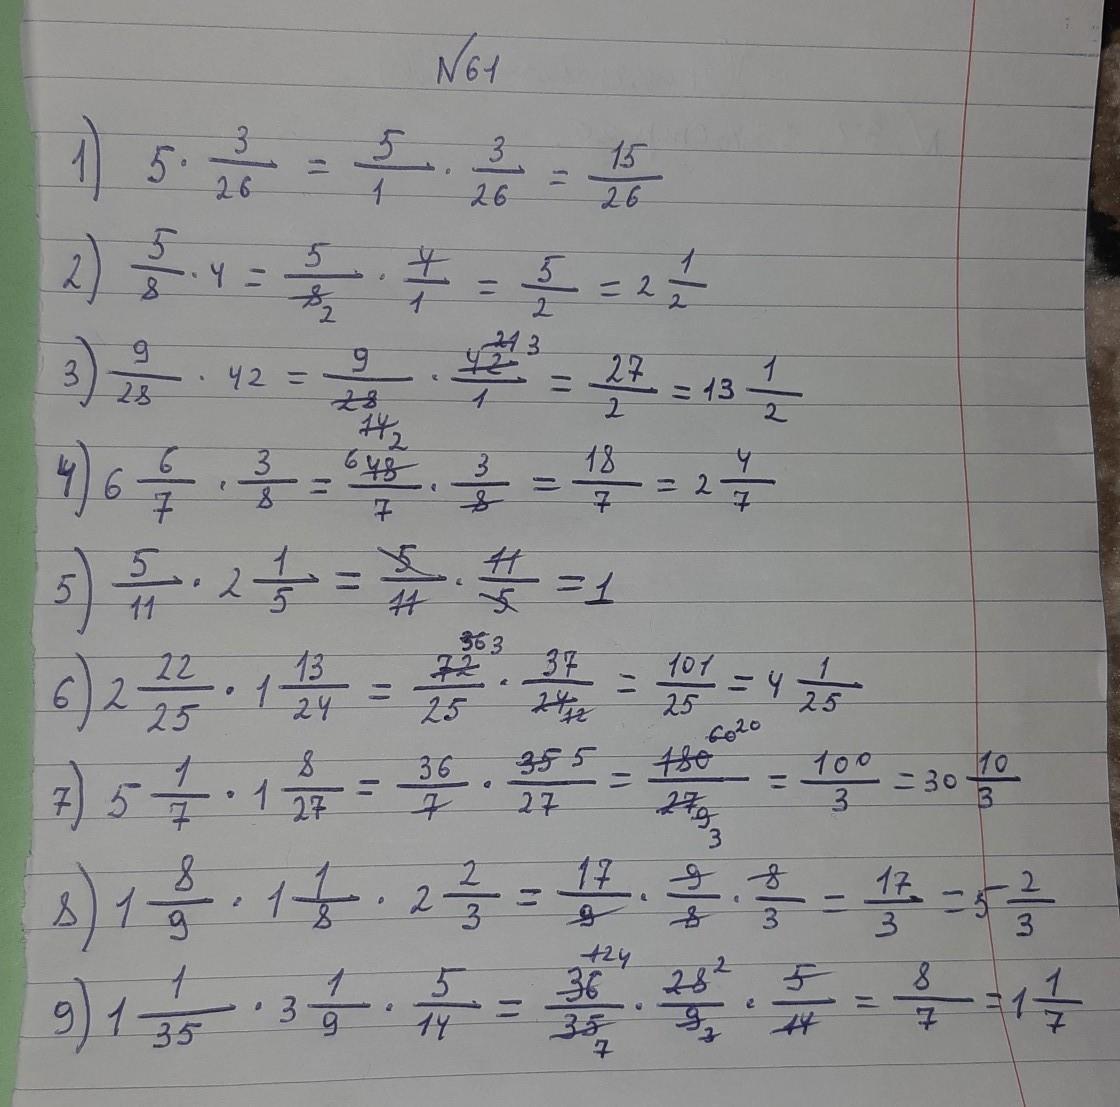 №61
1) 5 · 3/26 = 5/1 · 3/26 = 15/26
2) 5/8 · 4 = 5/8 2 · 4/1 = 5/2 = 2 1/2
3) 9/28 · 42 = 9/28 14 2 · 42 21 3/1 = 27/2 = 13 1/2
4) 6 6/7 · 3/8 = 6 48/7 · 3/8 = 18/7 = 2 4/7
5) 5/11 · 2 1/5 = 5/11 · 11/5 = 1
6) 2 22/25 · 1 13/24 = 72 36 3/25 · 37/24 12 = 101/25 = 4 1/25
7) 5 1/7 · 1 8/27 = 36/7 · 35 5/27 = 180 60 20/27 9 3 = 100/3 = 30 10/3
8) 1 8/9 · 1 1/8 · 2 2/3 = 17/9 · 9/8 · 8/3 = 17/3 = 5 2/3
9) 1 1/35 · 3 1/9 · 5/14 = 36 12 4/35 7 · 28 2/9 3 · 5/14 = 8/7 = 1 1/7